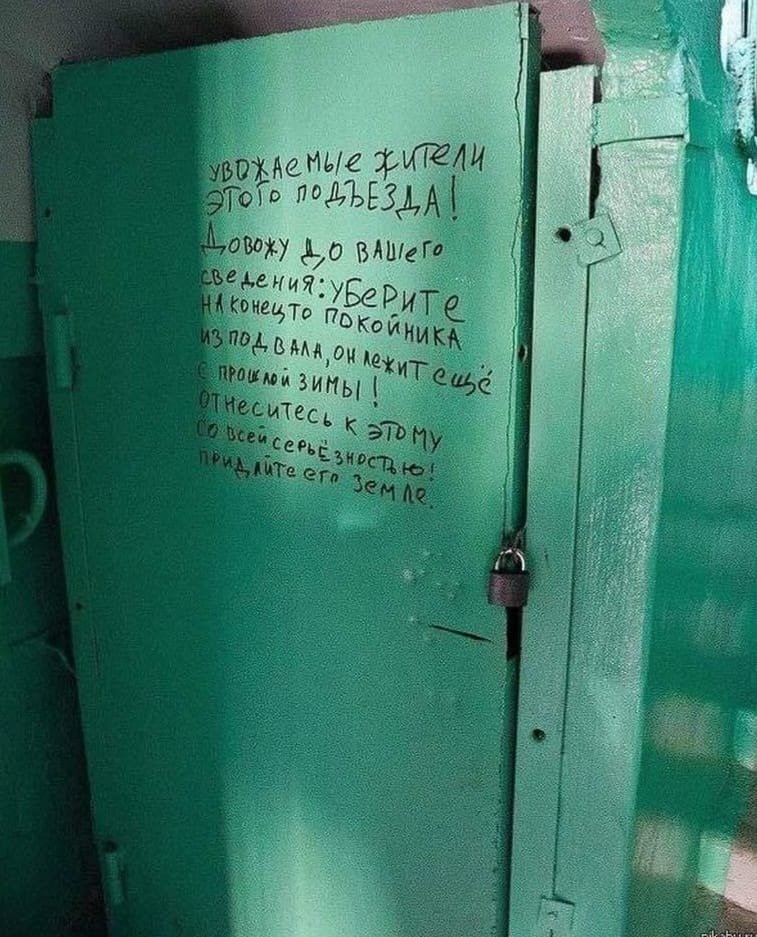 УВОЖАеМЫе ЖИТЕЛИ
ЭТОГО ПОДЪЕЗДА!
ДОВОЖУ ДО ВАШего
сведения: УБеРИТе
НАКОНЕЦТО ПОКОЙНИКА
ИЗ ПОДВАЛА, ОН лежит ещё
с прошлой зимы!
Отнеситесь к этому
со всей серьёзностью!
Придайте его земле.
pikabu.ru